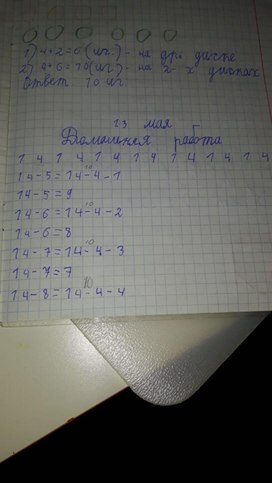 1) 4+2=6 (иг.) - на др. диске
2) 4+6=10 (иг) - на 2-х дисках
Ответ 10 иг
23 мая
Домашняя работа
1 4 1 4 1 4 1 4 1 4 1 4 1 4
10
14-5=14-4-1
14-5=9
10
14-6=14-4-2
14-6=8
10
14-7=14-4-3
14-7=7
10
14-8=14-4-4